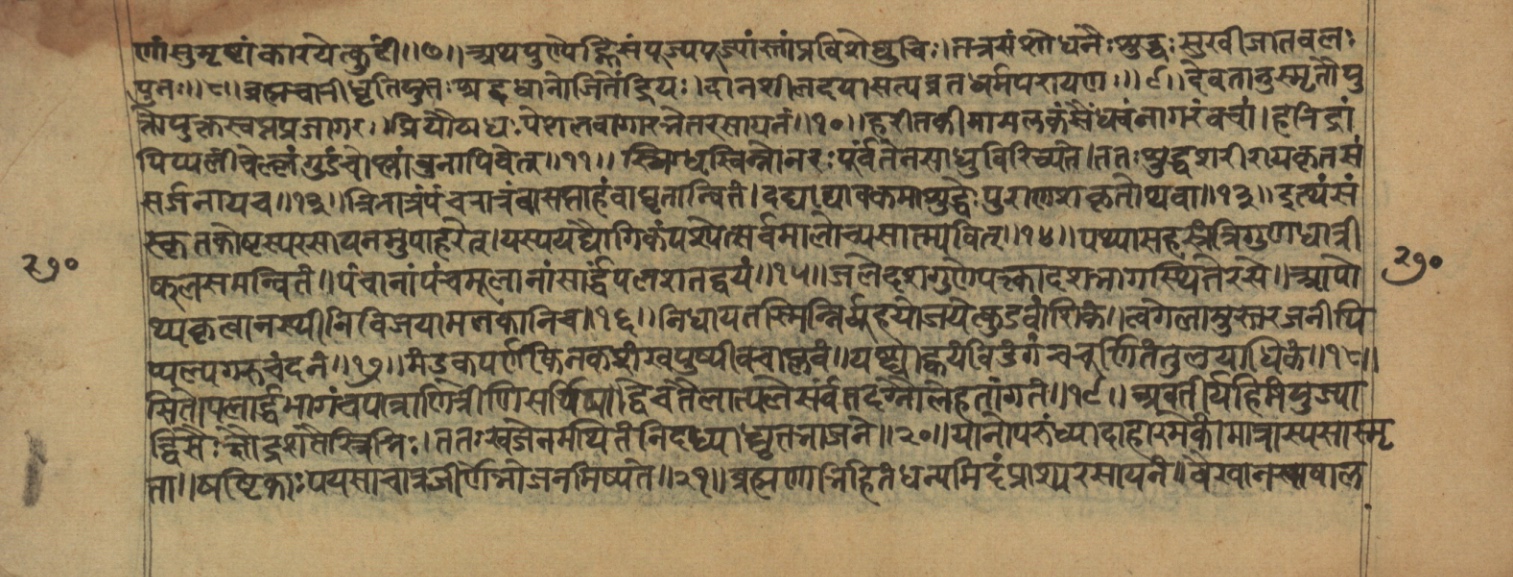 णांसुमृष्टांकारयेत्कुटीं॥७॥अथपुण्येह्निसंपूज्यपूज्यांस्तांप्रविशेछुचिः।तत्रसंशोधनैःशुद्धःसुखीजातबलः
पुनः॥८॥ब्रह्मचारीधृतियुतःश्रद्दधानोजितेंद्रियः।दानशीलदयासत्यव्रतधर्मपरायणः॥९॥देवतानुस्मृतौयु
क्तोयुक्तस्वप्नप्रजागरः॥प्रियौषधःपेशलवागारभेतरसायनं॥१०॥हरीतकीमामलकंसैंधवंनागरंवचां।हरिद्रां
पिप्पलींवेल्लंगुडंचोष्णांबुनापिबेत्॥११॥स्निग्धस्विन्नोनरःपूर्वंतेनसाधुविरिच्यते।ततःशुद्धशरीरायकृतसं
सर्जनायच॥१२॥त्रिरात्रंपंचरात्रंवासप्ताहंवाघृतान्वितं।दद्याद्यावकमाशुद्धेःपुराणशकृतोथवा॥१३॥इत्थंसं
स्कृतकोष्टस्यरसायनमुपाहरेत्।यस्ययद्यौगिकंपश्येत्सर्वमालोच्यसात्म्यवित्॥१४॥पथ्यासहस्रंत्रिगुणधात्री
२७०
फलसमन्वितं॥पंचानांपंचमूलानांसार्द्धंपलशतद्वयं॥१५॥जलेदशगुणेपक्त्वादशभागस्थितेरसे॥आपो
२७०
थ्यकृत्वानस्थीनिविजयामलकानिच॥१६॥निधायतस्मिन्निर्यूहेयोजयेत्कुडवांशिकं॥त्वगेलामुस्तरजनीपि
प्पल्यगरुचंदनं॥१७॥मंडूकपर्णीकनकशंखपुष्पीवचाप्लवं॥यष्ट्याह्वयंविडंगंचचूर्णितंतुलयाधिकं॥१८॥
सितोपलार्द्धभारंचपात्राणित्रीणिसर्पिषा।द्वेचतैलात्पचेत्सर्वंतदग्नौलेहतांगतं॥१९॥अवतीर्यहिमेयुंज्या
द्विंशैःक्षौद्रशतैस्त्रिभिः।ततःखजेनमथितंनिदध्याद्घृतभाजने॥२०॥यानोपरुंध्यादाहारमेकंमात्रास्यसास्मृ
ता॥षष्टिकाःपयसाचात्रजीर्णेभोजनमिष्यते॥२१॥ब्रह्मणाभिहितंधन्यमिदंप्राश्यरसायनं॥वैखानसावाल